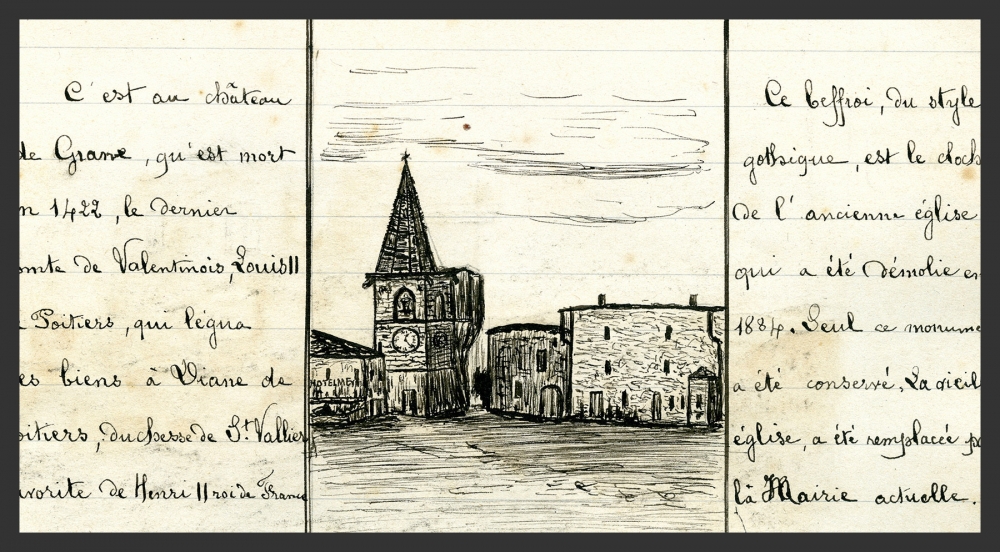 C'est au château
de Grane, qu'est mort
n 1422, le dernier
omte de Valentinois, Louis II
Poitiers, qui légua
es biens à Diane de
oitiers, duchesse de St Vallier
avorite de Henri II roi de France
HOTEL
Ce beffroi, du style
gothique, est le cloch
de l'ancienne église
qui a été démolie en
1884. Seul ce monume
a été conservé, La vieil
église, a été remplacée pa
là Mairie actuelle.